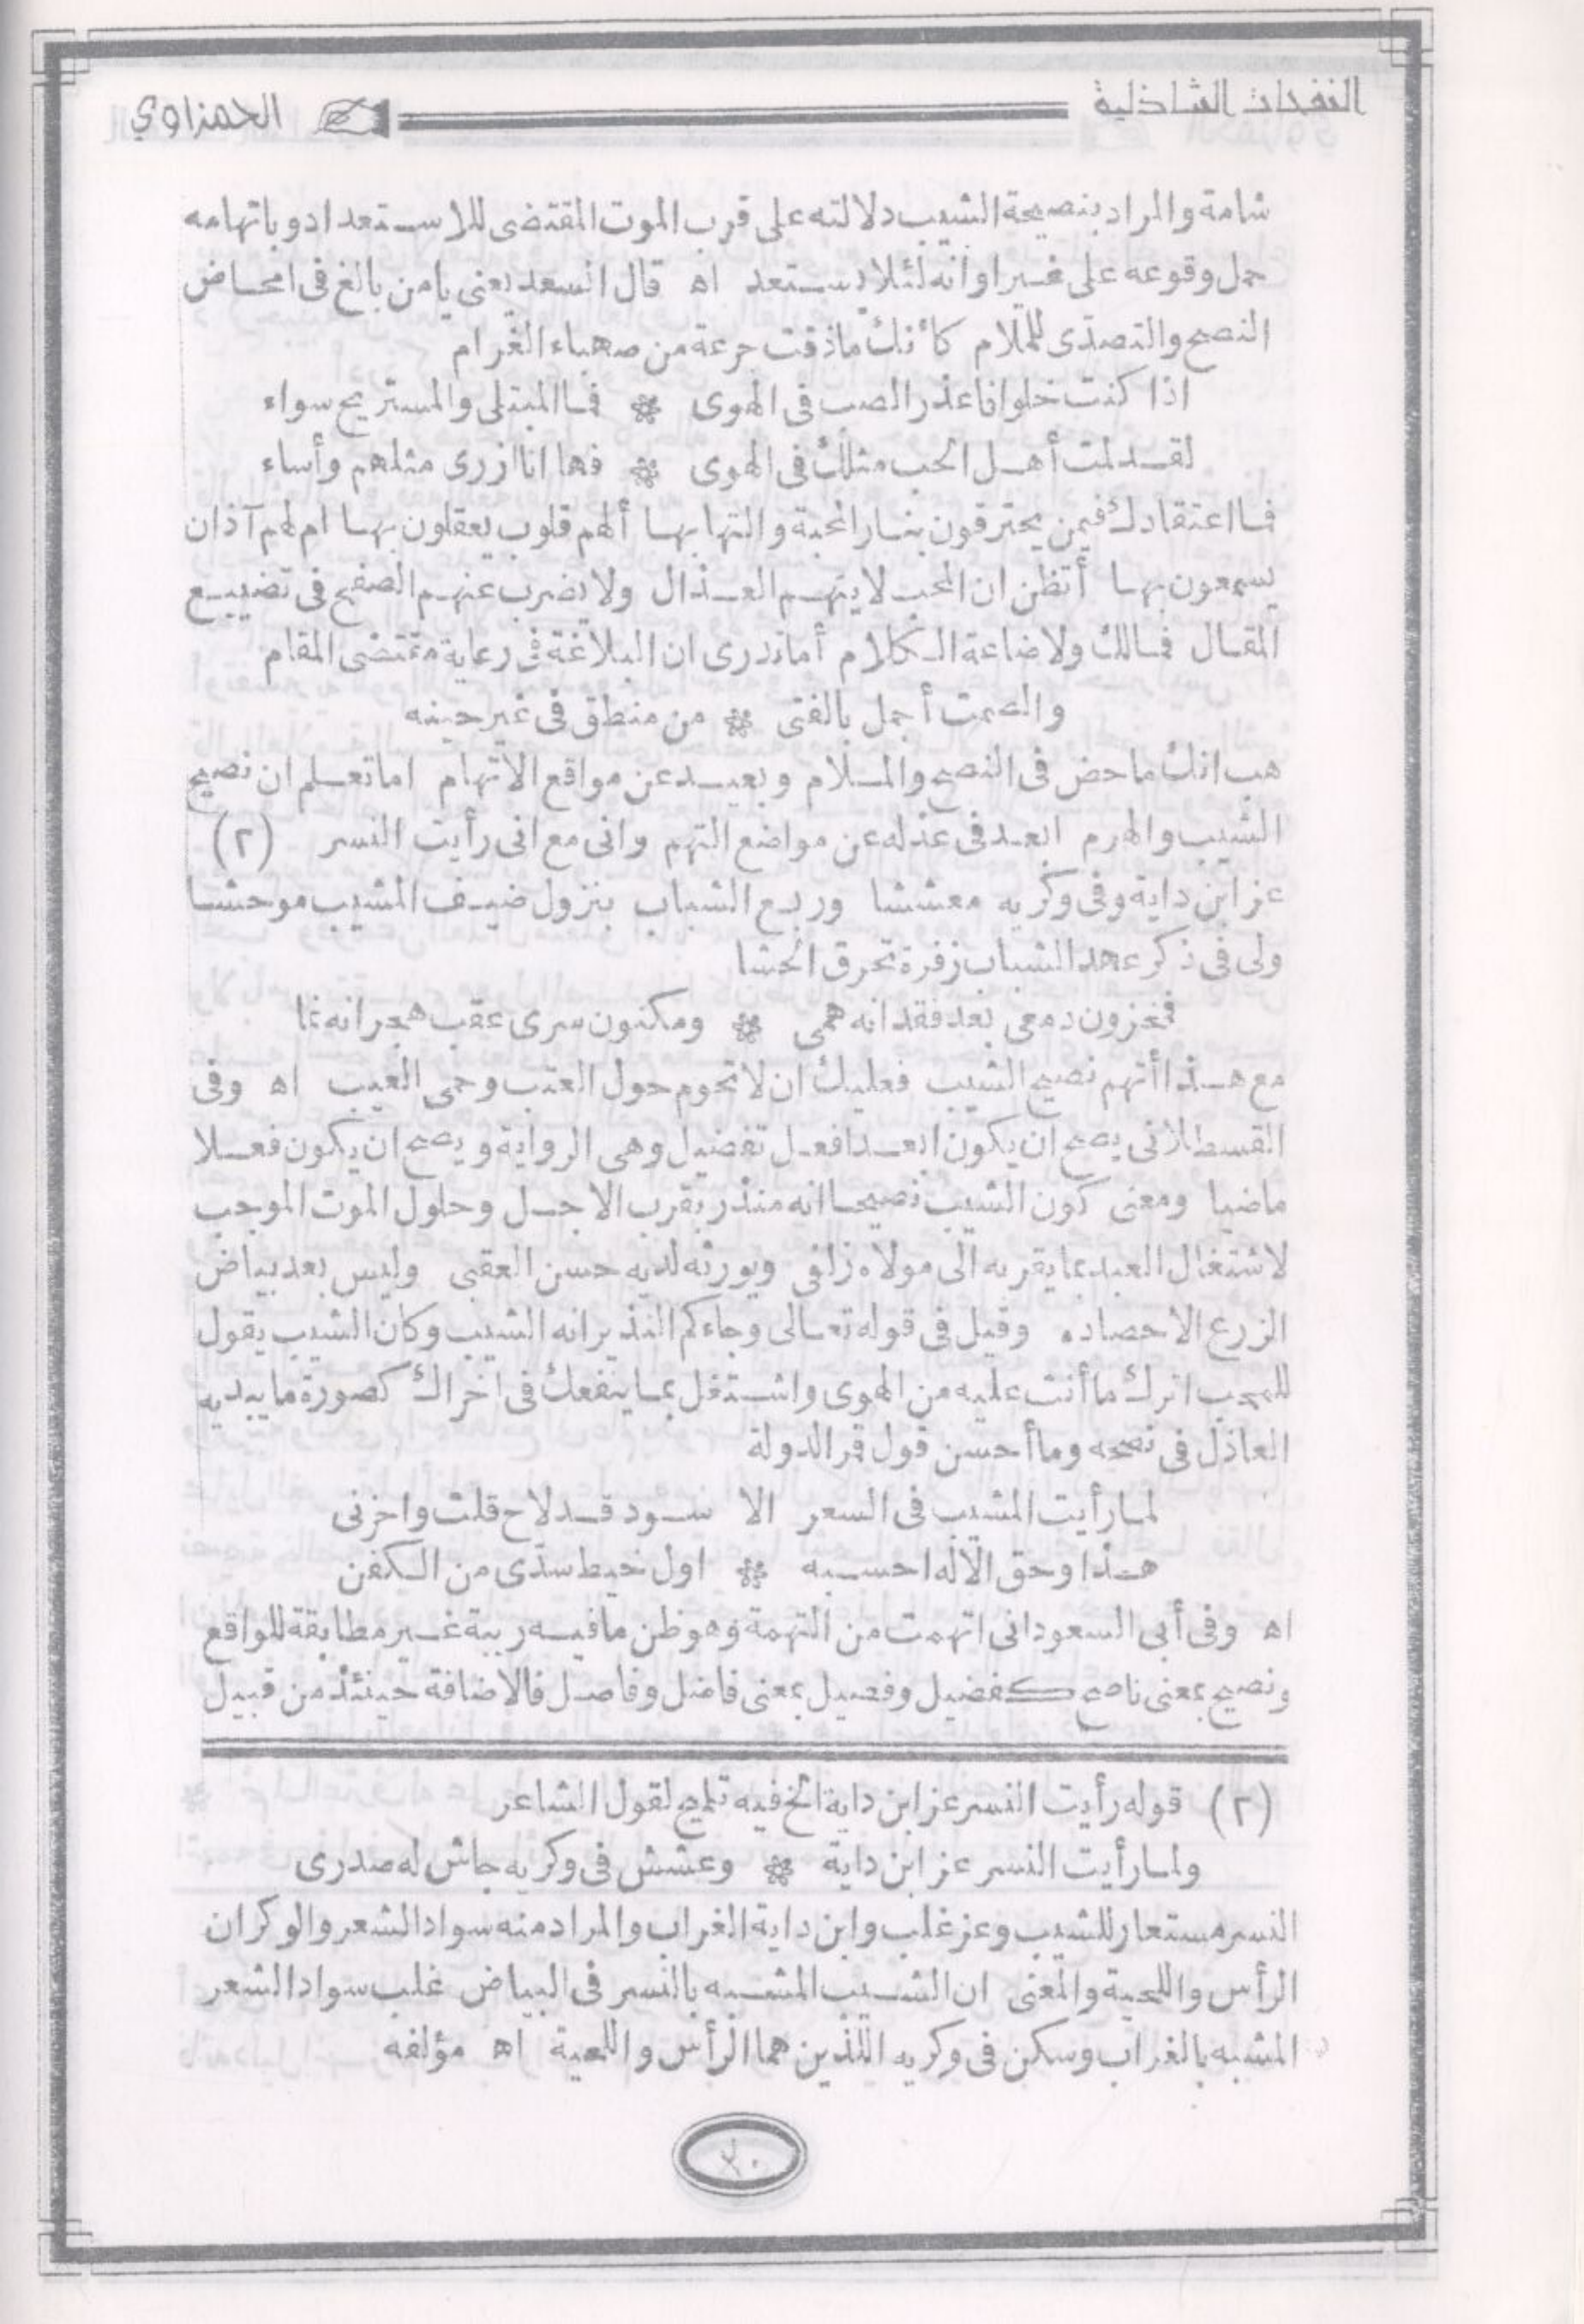 النفحات الشاذلية
الحمزاوي
شامة والمراد بنصيحة الشيب دلالته على قرب الموت المقتضى للاستعداد وباتهامه
حمل وقوعه على غير اوانه لئلا يستعد اه قال السعد يعنى يا من بالغ فى امحاض
النصح والتصدّى للملام كأنك ماذقت جرعة من صهباء الغرام
اذا كنت خلوا فاعذر الصب فى الهوى * فما المبتلى والمستريح سواء
لقد لمت أهل الحب مثلك فى الهوى * فها انا ازرى مثلهم وأساء
فما اعتقادك فيمن يحترقون بنار المحبة والتهابها ألهم قلوب يعقلون بها ام لهم آذان
يسمعون بها أتظن ان المحب لا يتهم العذال ولا يضرب عنهم الصفح فى تضييع
المقال فمالك ولاضاعة الكلام أماتدرى ان البلاغة فى رعاية مقتضى المقام
والصمت أجمل بالفتى * من منطق فى غير حينه
هب انك ماحض فى النصح والملام وبعيد عن مواقع الاتهام اما تعلم ان نصيح
الشيب والهرم ابعد فى عذله عن مواضع التهم وانى مع انى رأيت النسر (٢)
عز ابن داية وفى وكريه معششا وربع الشباب بنزول ضيف المشيب موحشا
ولى فى ذكر عهد الشباب زفرة تحرق الحشا
فمخزون دمعى بعد فقدانه همى * ومكنون سرى عقب هجرانه نما
مع هذا أتهم نصيح الشيب فعليك ان لا تحوم حول العتب وحمى العيب اه وفى
القسطلانى يصح ان يكون ابعد افعل تفضيل وهى الرواية ويصح ان يكون فعلا
ماضيا ومعنى كون الشيب نصيحا انه منذر بقرب الاجل وحلول الموت الموجب
لاشتغال العبد بما يقربه الى مولاه زلفى ويورثه لديه حسن العقبى وليس بعد بياض
الزرع الاحصاده وقيل فى قوله تعالى وجاءكم النذير انه الشيب وكان الشيب يقول
للمحب اترك ما أنت عليه من الهوى واشتغل بما ينفعك فى اخراك كصورة ما يبديه
العاذل فى نصحه وما أحسن قول قمر الدولة
لما رأيت المشيب فى السعر الا سود قد لاح قلت واحزنى
هذا وحق الاله احسبه * اول خيط سدّى من الكفن
اه وفى أبى السعود انى اتهمت من التهمة وهو ظن مافيه ريبة غير مطابقة للواقع
ونصيح بمعنى ناصح كفضيل وفصيل بمعنى فاضل وفاصل فالاضافة حينئذ من قبيل
(٢) قوله رأيت النسر عز ابن داية الخ فيه تلميح لقول الشاعر
ولما رأيت النسر عز ابن داية * وعشش فى وكريه جاش له صدرى
النسر مستعار للشيب وعز غلب وابن داية الغراب والمراد منه سواد الشعر والوكران
الرأس واللحية والمعنى ان الشيب المشبه بالنسر فى البياض غلب سواد الشعر
المشبه بالغراب وسكن فى وكريه اللذين هما الرأس واللحية اه مؤلفه